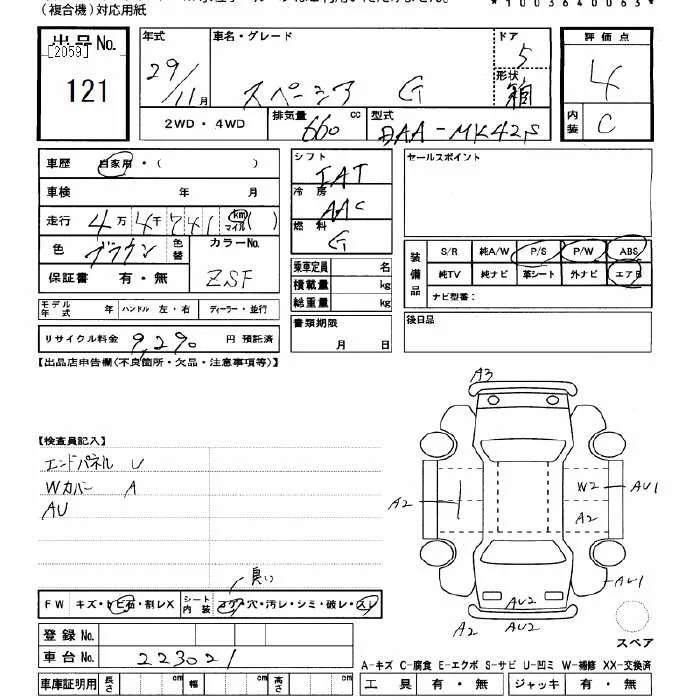 (複合機)対応用紙
*1003640063*
出品No.
[2059]
121
年式
29/11月
車名・グレード
スペーシア G
ドア
5
形状
箱
評価点
4
内装
C
2WD・4WD
排気量
660 cc
型式
DAA-MK42S
車歴 自家用・( )
車検 年 月
走行 4万4千741 km マイル ( )
色 ブラウン
色替
カラーNo.
ZSF
保証書 有・無
モデル年式 年 ハンドル 左・右 ディーラー・並行
リサイクル料金 9,290 円 預託済
シフト
IAT
冷房
AAC
燃料
G
乗車定員 名
積載量 kg
総重量 kg
書類期限
月 日
セールスポイント
装備品
S/R 純A/W P/S P/W ABS
純TV 純ナビ 革シート 外ナビ エアB
ナビ型番:
後日品
【出品店申告欄(不良箇所・欠品・注意事項等)】
【検査員記入】
エンドパネル U
Wカバー A
AU
A3
A2
W2
AU1
A2
AU1
AU2
A2
AU2
スペア
良い
FW キズ・トビ石・割レX
シート内装 コゲ・穴・汚レ・シミ・破レ・スレ
登録No.
車台No. 223021
車庫証明用 長さ cm 幅 cm 高さ cm
A-キズ C-腐食 E-エクボ S-サビ U-凹ミ W-補修 XX-交換済
工具 有・無 ジャッキ 有・無